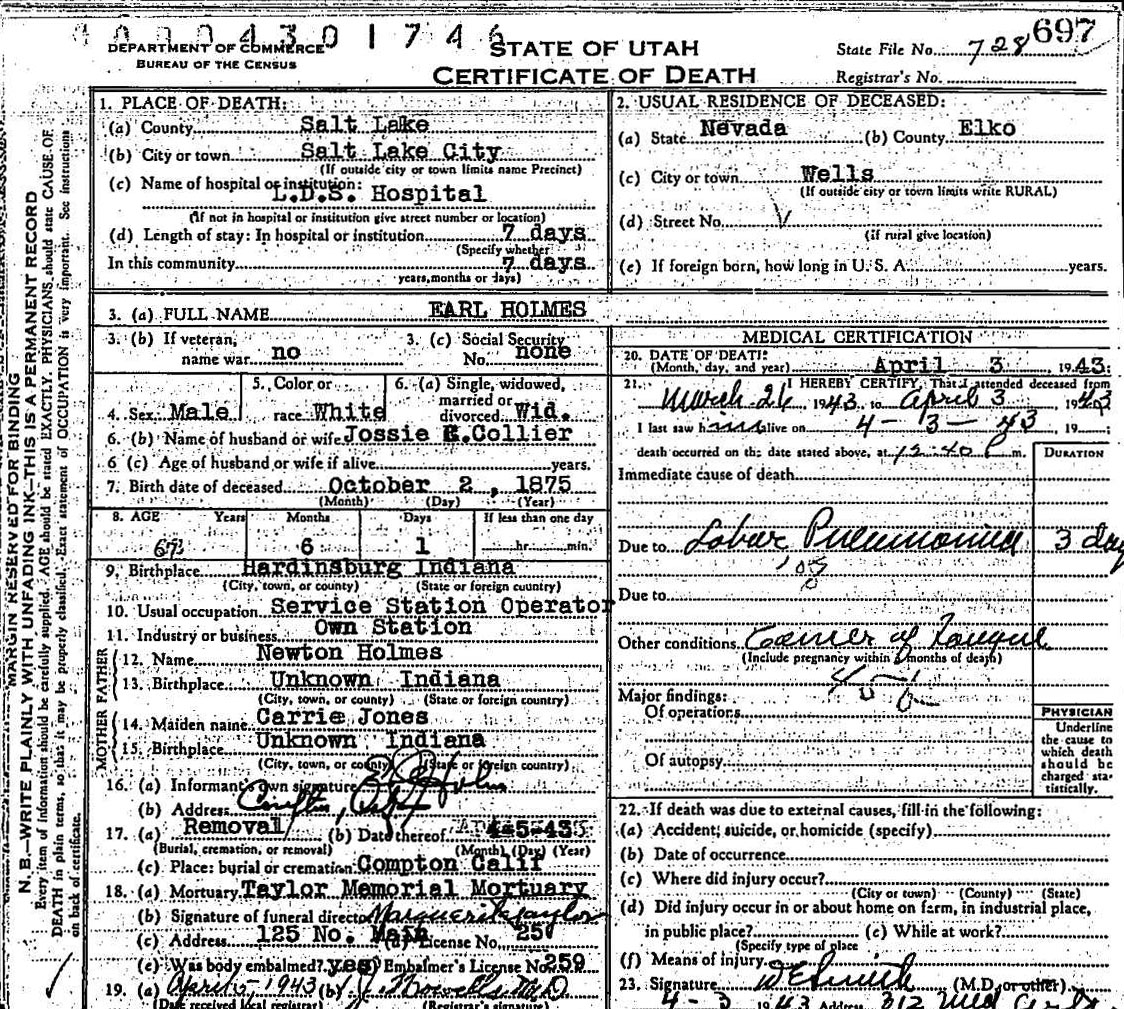 4 0 0 0 4 3 0 1 7 4 6
697
DEPARTMENT OF COMMERCE
BUREAU OF THE CENSUS
STATE OF UTAH
CERTIFICATE OF DEATH
State File No. 728
Registrar's No.
MARGIN RESERVED FOR BINDING
N. B.—WRITE PLAINLY WITH UNFADING INK—THIS IS A PERMANENT RECORD
Every item of information should be carefully supplied. AGE should be stated EXACTLY. PHYSICIANS should state CAUSE OF
DEATH in plain terms, so that it may be properly classified. Exact statement of OCCUPATION is very important. See instructions
on back of certificate.
1. PLACE OF DEATH:
(a) County Salt Lake
(b) City or town Salt Lake City
(If outside city or town limits name Precinct)
(c) Name of hospital or institution:
L.D.S. Hospital
(If not in hospital or institution give street number or location)
(d) Length of stay: In hospital or institution 7 days
(Specify whether
In this community 7 days
years, months or days)
2. USUAL RESIDENCE OF DECEASED:
(a) State Nevada (b) County Elko
(c) City or town Wells
(If outside city or town limits write RURAL)
(d) Street No.
(If rural give location)
(e) If foreign born, how long in U. S. A. years.
3. (a) FULL NAME EARL HOLMES
3. (b) If veteran, name war no
3. (c) Social Security No. none
4. Sex Male
5. Color or race White
6. (a) Single, widowed, married or divorced Wid.
6. (b) Name of husband or wife Jossie E. Collier
6 (c) Age of husband or wife if alive years.
7. Birth date of deceased October 2, 1875
(Month) (Day) (Year)
8. AGE Years Months Days If less than one day
67 6 1 hr. min.
9. Birthplace Hardinsburg Indiana
(City, town, or county) (State or foreign country)
10. Usual occupation Service Station Operator
11. Industry or business Own Station
FATHER
12. Name Newton Holmes
13. Birthplace Unknown Indiana
(City, town, or county) (State or foreign country)
MOTHER
14. Maiden name Carrie Jones
15. Birthplace Unknown Indiana
(City, town, or county) (State or foreign country)
16. (a) Informant's own signature
(b) Address Compton, Calif
17. (a) Removal (b) Date thereof 4-5-43
(Burial, cremation, or removal) (Month) (Day) (Year)
(c) Place: burial or cremation Compton Calif
18. (a) Mortuary Taylor Memorial Mortuary
(b) Signature of funeral director Marguerite Taylor
(c) Address 125 No. Main (d) License No.
(e) Was body embalmed? yes (f) Embalmer's License No. 259
19. (a) April 5, 1943 (b)
(Date received local registrar) (Registrar's signature)
MEDICAL CERTIFICATION
20. DATE OF DEATH:
(Month, day, and year) April 3 1943;
21. I HEREBY CERTIFY, That I attended deceased from
March 26, 1943, to April 3 1943
I last saw him alive on 4-3-43, 19 ;
death occurred on the date stated above, at 12:40 P m.
DURATION
Immediate cause of death
Due to Lobar Pneumonia 3 day
Due to
Other conditions Cancer of Tongue
(Include pregnancy within 3 months of death)
Major findings:
Of operations
Of autopsy
PHYSICIAN
Underline
the cause to
which death
should be
charged sta-
tistically.
22. If death was due to external causes, fill in the following:
(a) Accident, suicide, or homicide (specify)
(b) Date of occurrence
(c) Where did injury occur?
(City or town) (County) (State)
(d) Did injury occur in or about home on farm, in industrial place,
in public place? (e) While at work?
(Specify type of place
(f) Means of injury
23. Signature (M.D. or other)
4-3 1943 Address 312 Med Arts